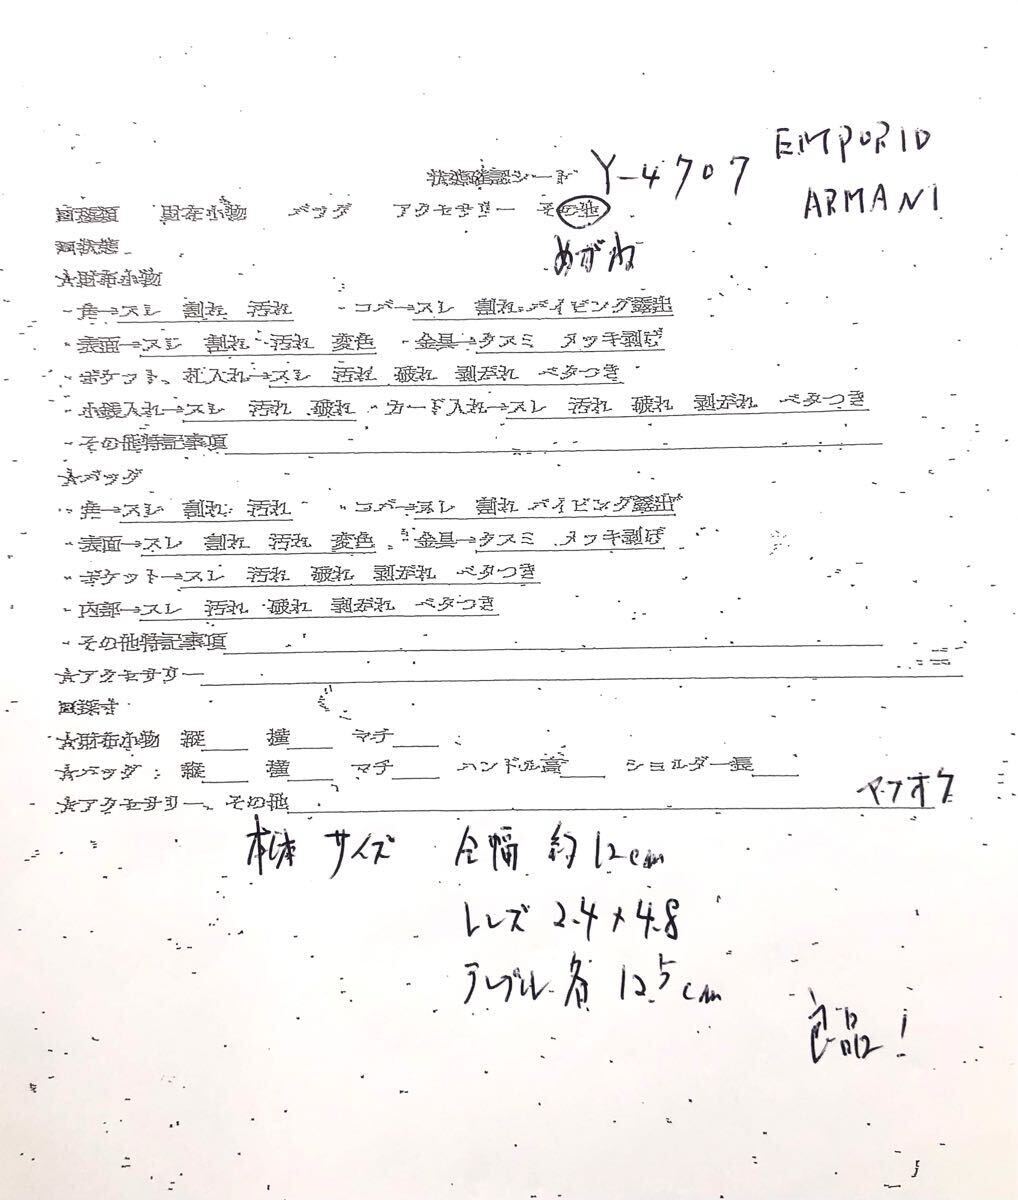 EMPORIO
状態確認シート Y-4707
ARMANI
■種類 財布小物 バッグ アクセサリー その他
■状態 めがね
★財布小物
・角→スレ 割れ 汚れ ・コバ→スレ 割れ パイピング露出
・表面→スレ 割れ 汚れ 変色 ・金具→クスミ メッキ剥げ
・ポケット、札入れ→スレ 汚れ 破れ 剥がれ ベタつき
・小銭入れ→スレ 汚れ 破れ ・カード入れ→スレ 汚れ 破れ 剥がれ ベタつき
・その他特記事項
★バッグ
・角→スレ 割れ 汚れ ・コバ→スレ 割れ パイピング露出
・表面→スレ 割れ 汚れ 変色 ・金具→クスミ メッキ剥げ
・ポケット→スレ 汚れ 破れ 剥がれ ベタつき
・内部→スレ 汚れ 破れ 剥がれ ベタつき
・その他特記事項
★アクセサリー
■採寸
★財布小物 縦 横 マチ
★バッグ:縦 横 マチ ハンドル高 ショルダー長
★アクセサリー、その他 ヤフオク
本体 サイズ 全幅 約12cm
レンズ 2.4×4.8
テンプル 各 12.5cm
良品!